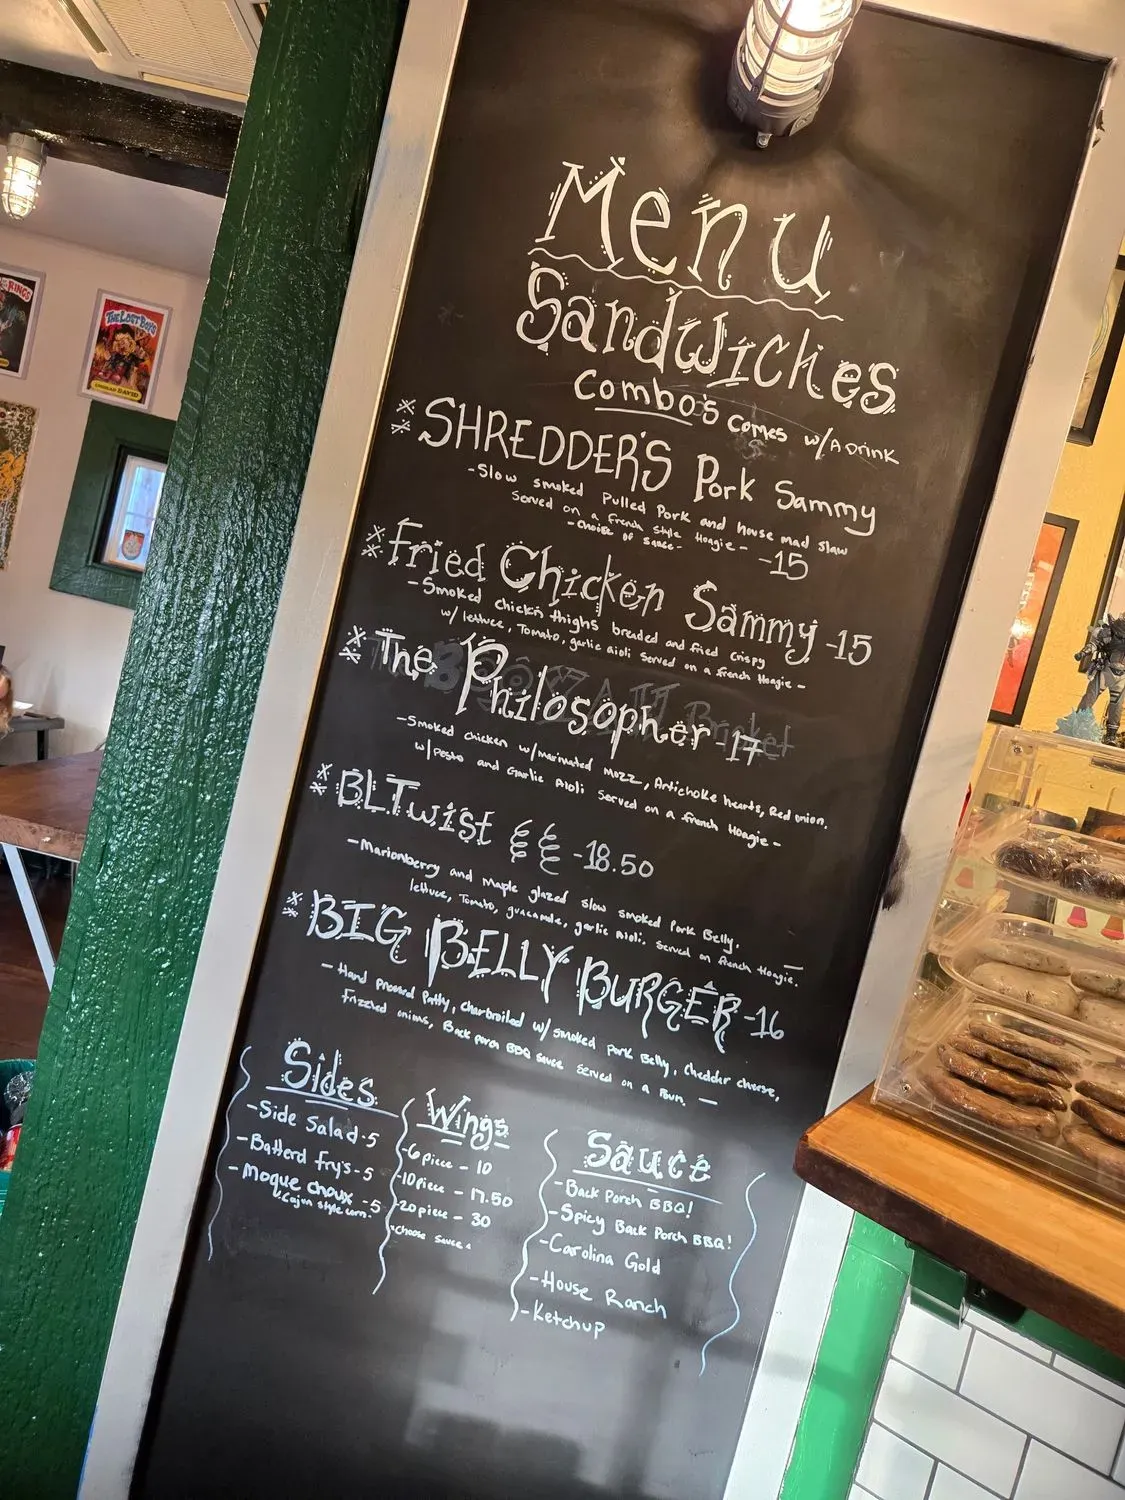 THE LOST BOYS
DAVID
RINGS
Menu
Sandwiches
Combo's comes w/A DRINK
SHREDDER'S Pork Sammy
-Slow smoked Pulled Pork and house mad slaw
Served on a french style Hoagie- -15
-choise of sauce-
Fried Chicken Sammy -15
-Smoked chickn thighs breaded and fried crispy
w/ lettuce, Tomato, garlic aioli served on a french Hoagie-
The Philosopher -17
Brisket
-Smoked chicken w/marinated mozz, Artichoke hearts, Red onion,
w/Pesto and Garlic Aioli Served on a french Hoagie-
BLTwist -18.50
-Marionberry and maple glazed slow smoked Pork Belly,
lettuce, Tomato, guacamole, garlic Aioli, served on french Hoagie.
BIG BELLY BURGER -16
-Hand pressed Patty, charbroiled w/ smoked pork Belly, cheddar cheese,
frizzled onions, Back porch BBQ sauce served on a Bun.
Sides
-Side Salad-5
-Batterd fry's-5
-Moque choux -5
-Cajun style corn-
Wings
-6 piece - 10
-10 piece - 17.50
-20 piece - 30
-choose sauce-
Sauce
-Back Porch BBQ!
-Spicy Back Porch BBQ!
-Carolina Gold
-House Ranch
-Ketchup